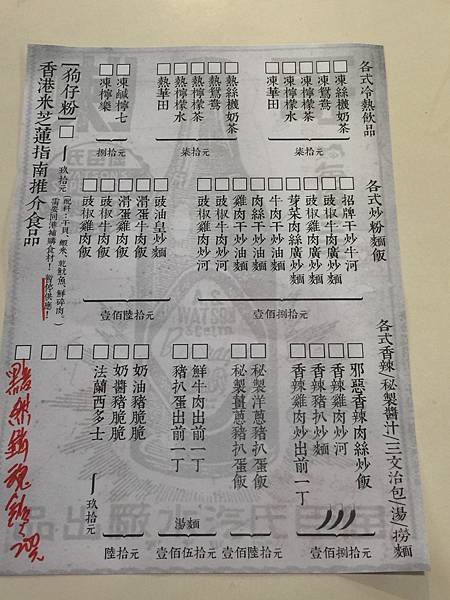 各式冷熱飲品
凍絲襪奶茶
凍鴛鴦
凍檸檬茶
凍檸檬水
凍華田
柒拾元
熱絲襪奶茶
熱鴛鴦
熱檸檬茶
熱檸檬水
熱華田
柒拾元
凍鹹檸七
凍檸樂
捌拾元
各式炒粉麵飯
招牌干炒牛河
豉椒牛肉廣炒麵
豉椒雞肉廣炒麵
芽菜肉絲廣炒麵
牛肉干炒油麵
肉絲干炒油麵
雞肉干炒油麵
豉椒牛肉炒河
豉椒雞肉炒河
壹佰捌拾元
豉油皇炒麵
滑蛋牛肉飯
滑蛋雞肉飯
豉椒牛肉飯
豉椒雞肉飯
壹佰陸拾元
各式香辣/秘製醬汁/三文治包/湯/撈麵
邪惡香辣肉絲炒飯
香辣雞肉炒河
香辣豬扒炒麵
香辣雞肉炒出前一丁
壹佰捌拾元
秘製洋蔥豬扒蛋飯
秘製薑蔥豬扒蛋飯
壹佰陸拾元
鮮牛肉出前一丁
豬扒蛋出前一丁
湯麵
壹佰伍拾元
奶油豬脆脆
奶醬豬脆脆
陸拾元
法蘭西多士
玖拾元
[狗仔粉]
玖拾元
(配料:干貝、蝦米、乾魷魚、鮮碎肉。)
需要同港補購食材!暫停供應!
香港米芝蓮指南推介食品
WATSON